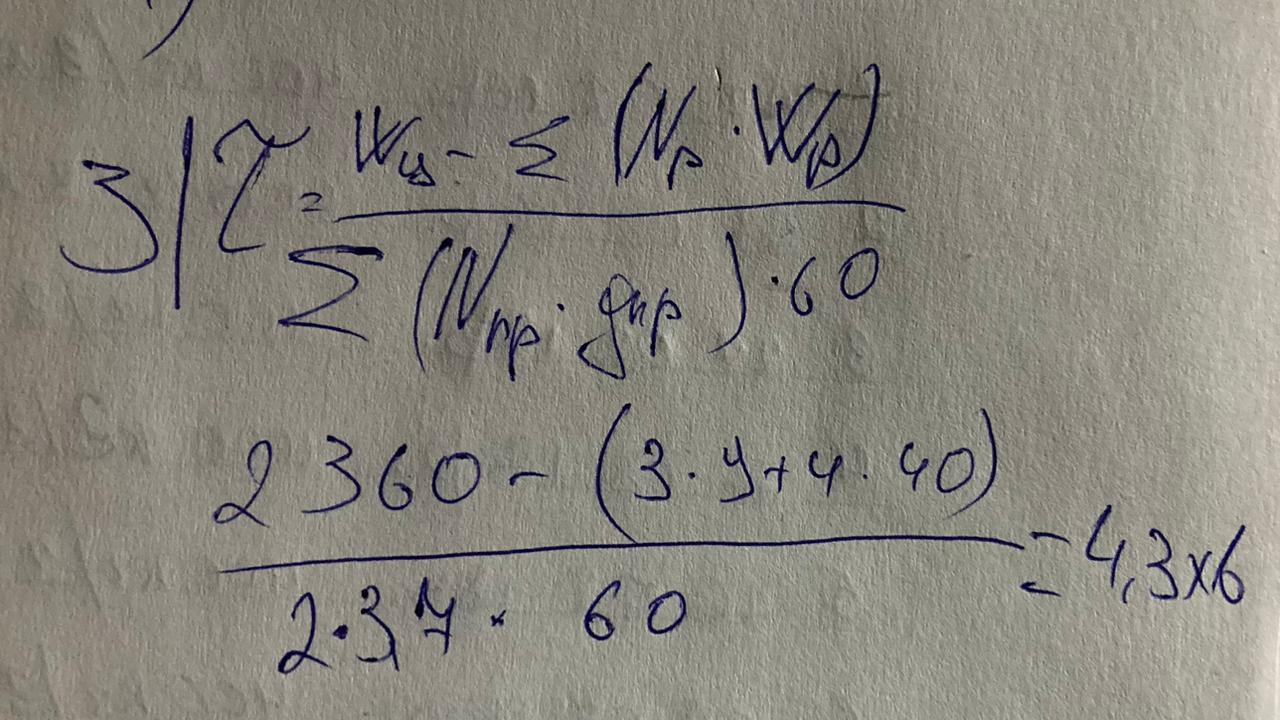 3) τ = Wц - Σ (Nр · Wр) / Σ (Nпр · gпр) · 60
2360 - (3 · 9 + 4 · 40) / 2 · 3,7 · 60 = 4,3 x6